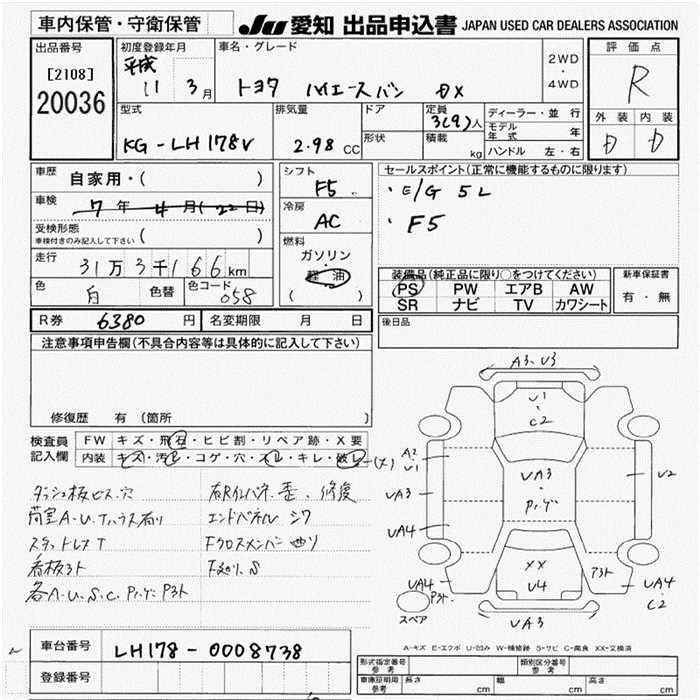 車内保管・守衛保管
JU 愛知 出品申込書 JAPAN USED CAR DEALERS ASSOCIATION
出品番号
[2108]
20036
初度登録年月
平成
11 3月
車名・グレード
トヨタ ハイエースバン DX
2WD
・
4WD
評価点
R
外装 内装
D D
型式
KG-LH178V
排気量
2.98 CC
ドア
形状
定員
3(9)人
積載
kg
ディーラー・並行
モデル年式 年
ハンドル 左・右
車歴
自家用・( )
車検
7年4月(22日)
受検形態
車検付きのみ記入して下さい ( )
走行
31万3千166km
色
白
色替
色コード
058
シフト
F5
冷房
AC
燃料
ガソリン
・
軽油
( )
セールスポイント(正常に機能するものに限ります)
・E/G 5L
・F5
装備品(純正品に限り○をつけてください)
PS PW エアB AW
SR ナビ TV カワシート
新車保証書
有・無
R券 6380 円
名変期限 月 日
後日品
注意事項申告欄(不具合内容等は具体的に記入して下さい)
修復歴 有 (箇所 )
検査員
記入欄
FW キズ・飛石・ヒビ割・リペア跡・X要
内装 キズ・汚し・コゲ・穴・スレ・キレ・破レ
ダッシュ板ビス穴
荷室A.U.Tハウス有り
スタットレスT
看板跡
各A.U.S.C.
右Rインパネ歪、修復
エンドパネル シワ
Fクロスメンバー曲り
下廻りS
A3.V3
V1
C2
A2
V1
VA3
VA3
V2
VA4
XX
V4
VA4
VA4
C2
スペア
VA3
A-キズ E-エクボ U-凹み W-補修跡 S-サビ C-腐食 XX-交換済
車台番号
LH178-0008738
登録番号
型式指定番号
参考
類別区分番号
参考
車庫証明用
参考
長さ cm
幅 cm
高さ cm